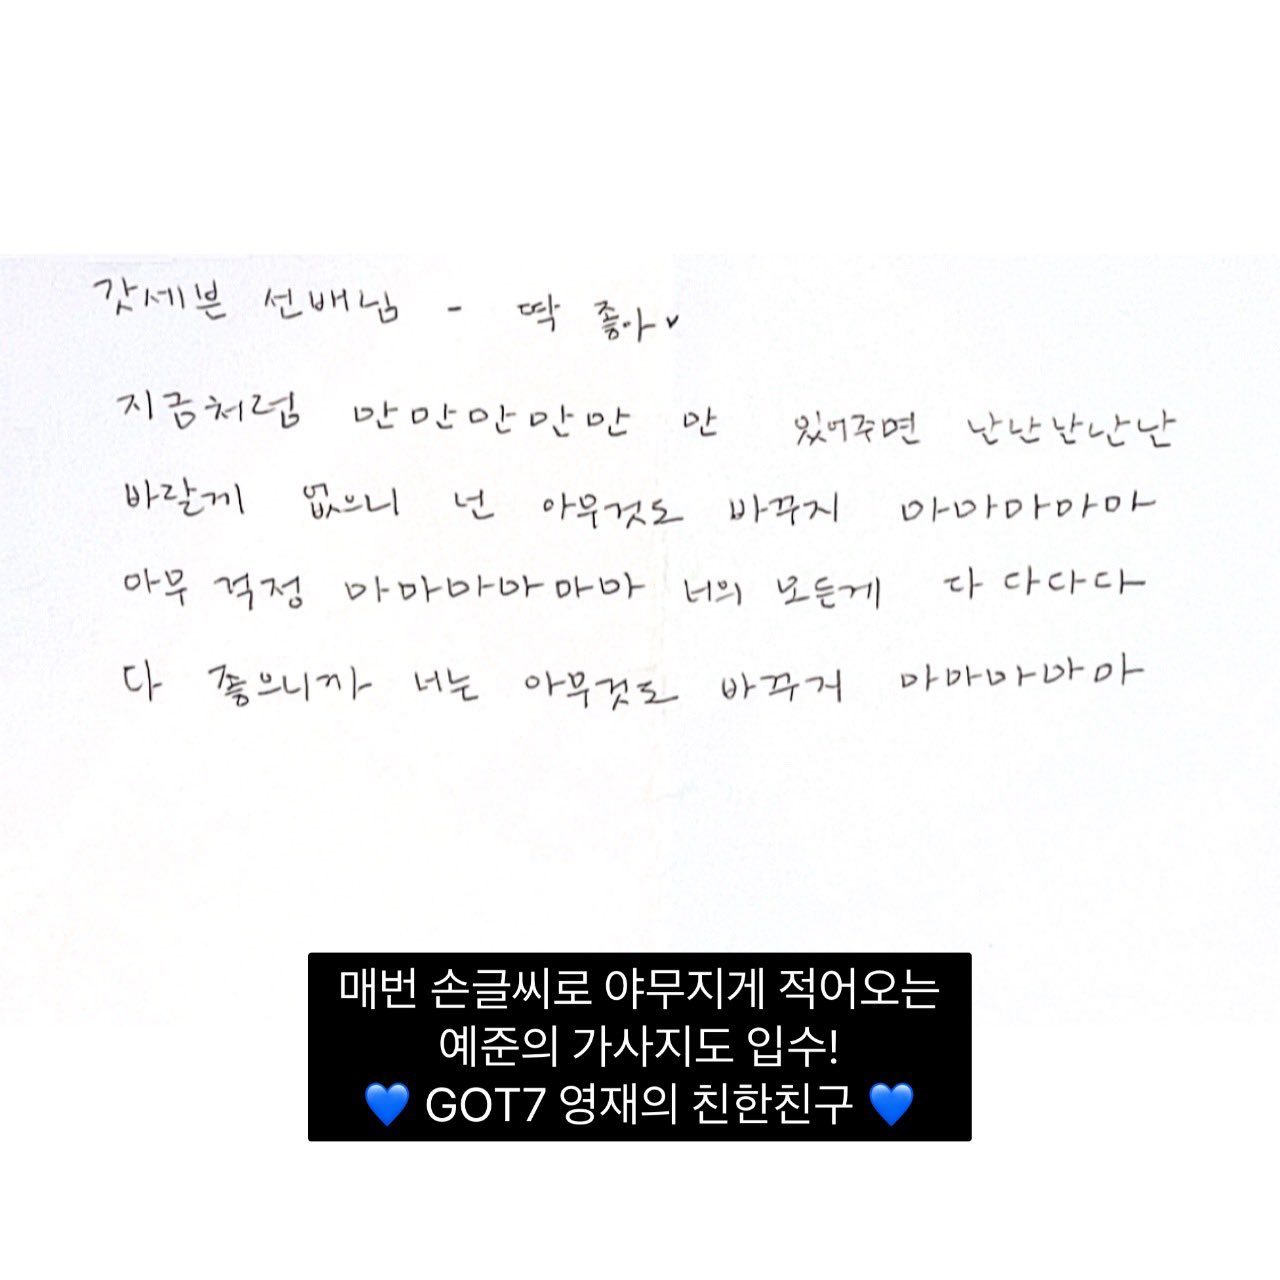 갓세븐 선배님 - 딱 좋아
지금처럼 만만만만만 안 있어주면 난난난난난
바랄게 없으니 넌 아무것도 바꾸지 마마마마마
아무 걱정 마마마마마마 너의 모든게 다 다다다
다 좋으니까 너는 아무것도 바꾸지 마마마마마
매번 손글씨로 야무지게 적어오는
예준의 가사지도 입수!
💙 GOT7 영재의 친한친구 💙